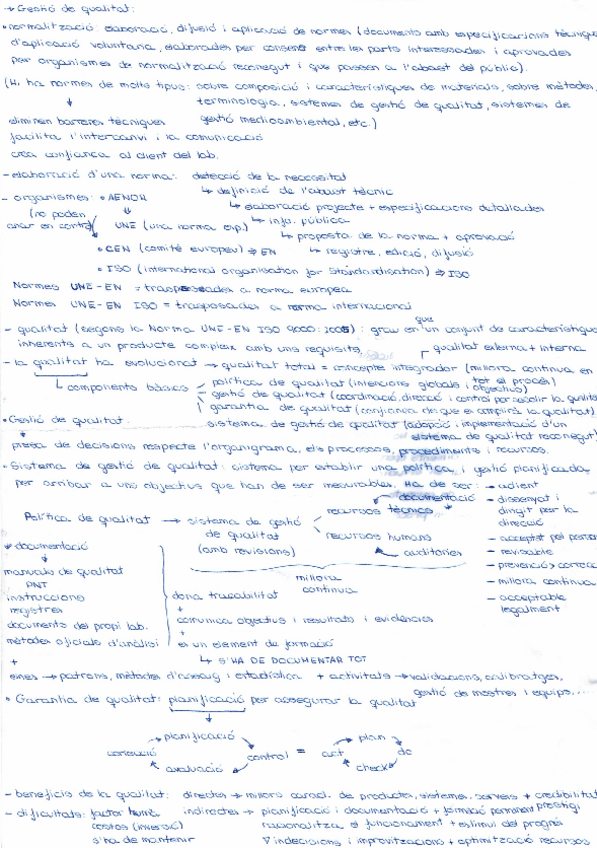 → Gestió de qualitat:
• normalització: elaboració, difusió i aplicació de normes (documents amb especificacions tècniques
d'aplicació voluntària, elaborades per consens entre les parts interessades i aprovades
per organismes de normalització reconegut i que passen a l'abast del públic).
(Hi ha normes de molts tipus: sobre composició i característiques de materials, sobre mètodes,
↓ terminologia, sistemes de gestió de qualitat, sistemes de
eliminen barreres tècniques gestió mediambiental, etc.)
facilita l'intercanvi i la comunicació
crea confiança al client del lab.
- elaboració d'una norma: detecció de la necessitat
↳ definició de l'abast tècnic
- organismes: • AENOR ↳ elaboració projecte + especificacions detallades
(no poden ↓ UNE (una norma esp.) ↳ info. pública
anar en contra) ↳ proposta de la norma + aprovació
• CEN (comité europeu) ⇒ EN ↳ registre, edició, difusió
• ISO (international organisation for Standardisation) ⇒ ISO
Normes UNE-EN = trasposades a norma europea
Normes UNE-EN ISO = trasposades a norma internacional
- qualitat (segons la Norma UNE-EN ISO 9000: ): grau en que un conjunt de característiques
inherents a un producte compleix amb uns requisits. qualitat externa + interna
- la qualitat ha evolucionat → qualitat total = concepte integrador (millora continua en tot el procés)
↳ components bàsics política de qualitat (intencions globals i objectius)
gestió de qualitat (coordinació, direcció i control per assolir la qualitat)
garantia de qualitat (confiança de que es complirà la qualitat)
• Gestió de qualitat. sistema de gestió de qualitat (adopció i implementació d'un
↓ sistema de qualitat reconegut)
presa de decisions respecte l'organigrama, els processos, procediments i recursos.
• Sistema de gestió de qualitat: sistema per establir una política i gestió planificada,
per arribar a uns objectius que han de ser mesurables. Ha de ser: - adient
documentació - dissenyat i
Política de qualitat → sistema de gestió recursos tècnics dirigit per la
de qualitat recursos humans direcció
* documentació (amb revisions) auditories - acceptat pel personal
↓ - revisable
manuals de qualitat - prevenció > correcció
PNT millora continua - millora continua
instruccions dona traçabilitat - acceptable
registres + legalment
documents del propi lab. comunica objectius i resultats i evidències
mètodes oficials d'anàlisi +
és un element de formació
+ ↳ S'HA DE DOCUMENTAR TOT
eines → patrons, mètodes d'assaig i estadística + activitats → validacions, calibratges,
gestió de mostres i equips,...
• Garantia de qualitat: planificació per assegurar la qualitat
↓
planificació plan
correcció control = act do
avaluació check
- beneficis de la qualitat: directes → millora caract. de productes, sistemes, serveis + credibilitat
- dificultats: factor humà indirectes → planificació i documentació + formació permanent prestigi
costos (inversió) racionalitza el funcionament + estímul del progrés
s'ha de mantenir ∇ indecisions i improvitzacions + optimització recursos